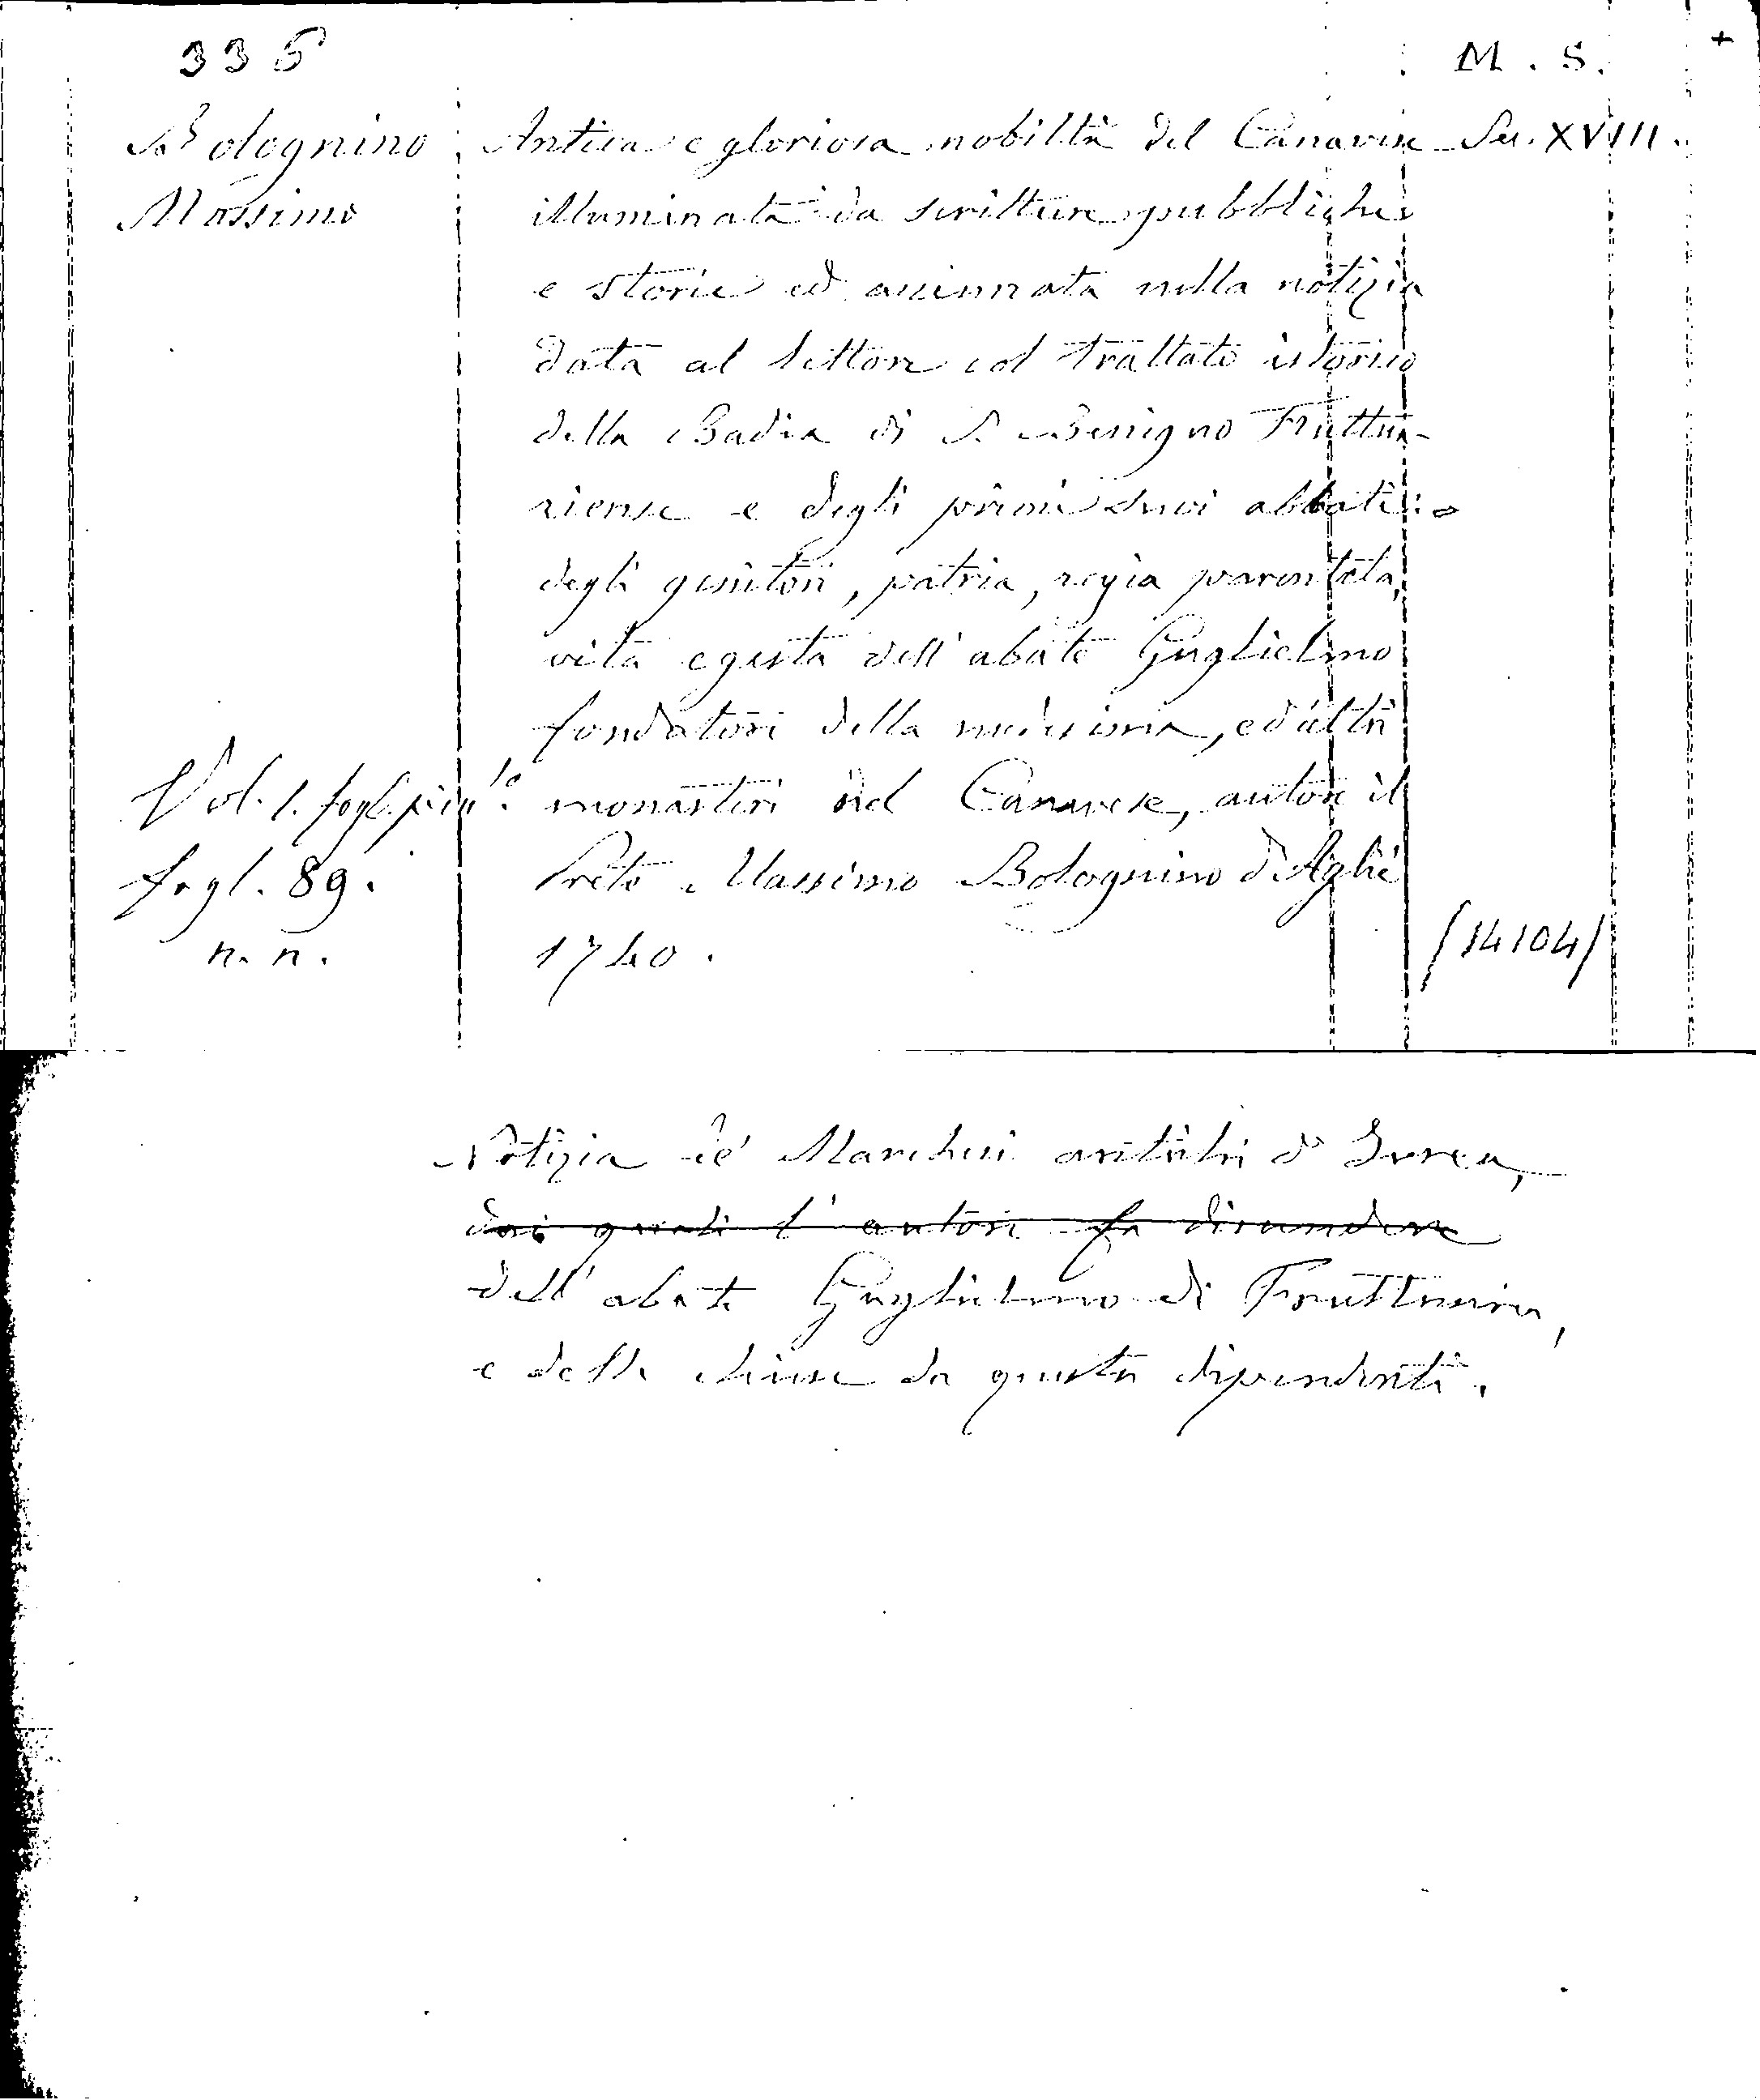 336 M. S. +
Bolognino Antica e gloriosa nobiltà del Canavese Sec. XVIII.
Massimo illuminata da scritture pubbliche
e storie ed accennata nella notizia
data al lettore col trattato istorico
della Badia di S. Benigno Fruttua-
riense e degli primi suoi abbati: e
degli genitori, patria, regia parentela,
vita e gesta dell' abate Guglielmo
fondatori della medesima, ed altri
Vol. 1. fogl. picc.lo monasteri del Canavese, autore il
fogl. 89. Prete Massimo Bolognino d'Agliè
n. n. 1740. /14104/
Notizia de' Marchesi antichi d' Ivrea,
dai quali l' autore fa discendere
dell' abate Guglielmo di Fruttuaria,
e delle chiese da questa dipendenti.